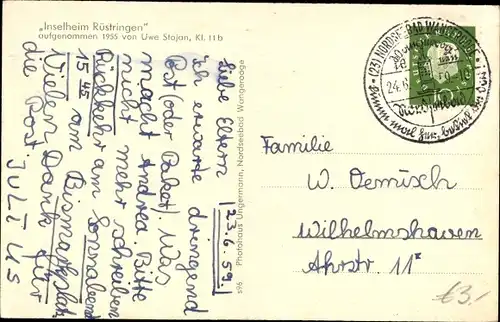 „Inselheim Rüstringen“
aufgenommen 1955 von Uwe Stojan, Kl. 11b
23.6.59.
Liebe Eltern!
Ich erwarte dringend
Post (oder Paket). Was
macht Andrea. Bitte
nicht mehr schreiben
Rückkehr am Sonnabend
15 am Bismarckplatz
Vielen Dank für
die Post.
JULIUS
596 Photohaus Ungermann, Nordseebad Wangerooge
(23) NORDSEEBAD WANGEROOGE
24.6.
Nordseeheilbad
Familie
W. Oemisch
Wilhelmshaven
Ahrstr. 11
€3.-